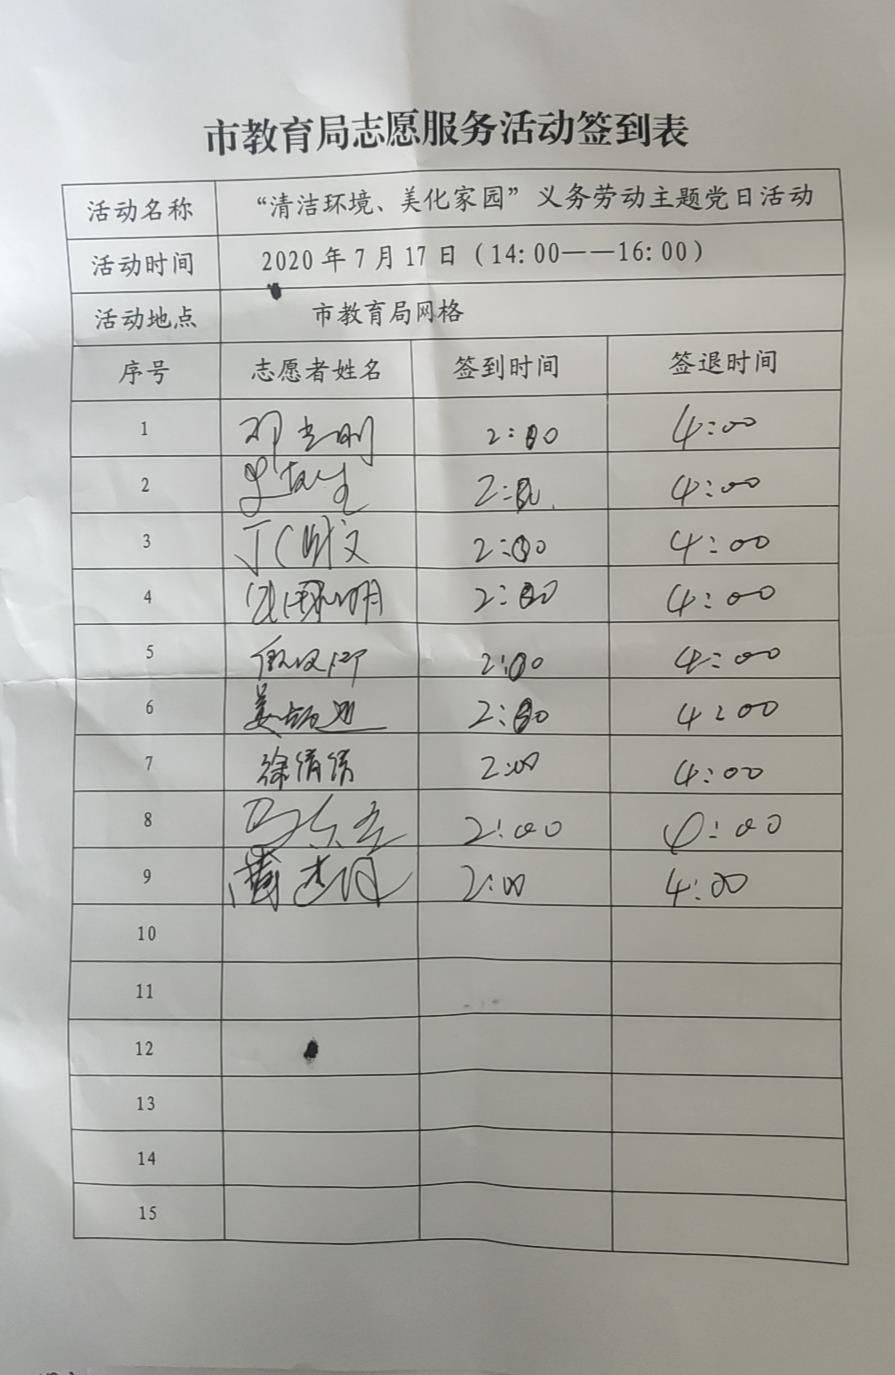 市教育局志愿服务活动签到表
活动名称 “清洁环境、美化家园”义务劳动主题党日活动
活动时间 2020年7月17日(14:00——16:00)
活动地点 市教育局网格
序号 志愿者姓名 签到时间 签退时间
1 2:00 4:00
2 4:00
3 2:00 4:00
4 2:00 4:00
5 2:00 4:00
6 2:00 4:00
7 徐倩倩 2:00 4:00
8 2:00 4:00
9 2:00 4:00
10
11
12
13
14
15